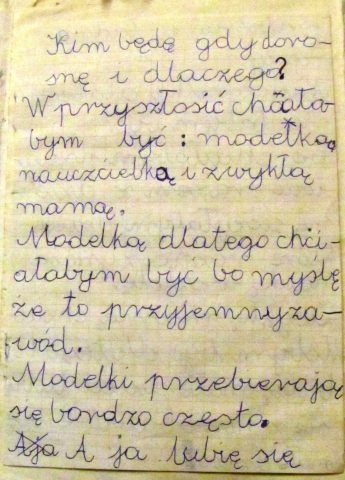 Kim będę gdy doro-
snę i dlaczego?
W przyszłosić chciała
bym być : modelką,
nauczcielką i zwykłą
mamą.
Modelką dlatego chci-
ałabym być bo myślę
że to przyjemny za-
wód.
Modelki przebierają
się bardzo często.
Aja A ja lubię się